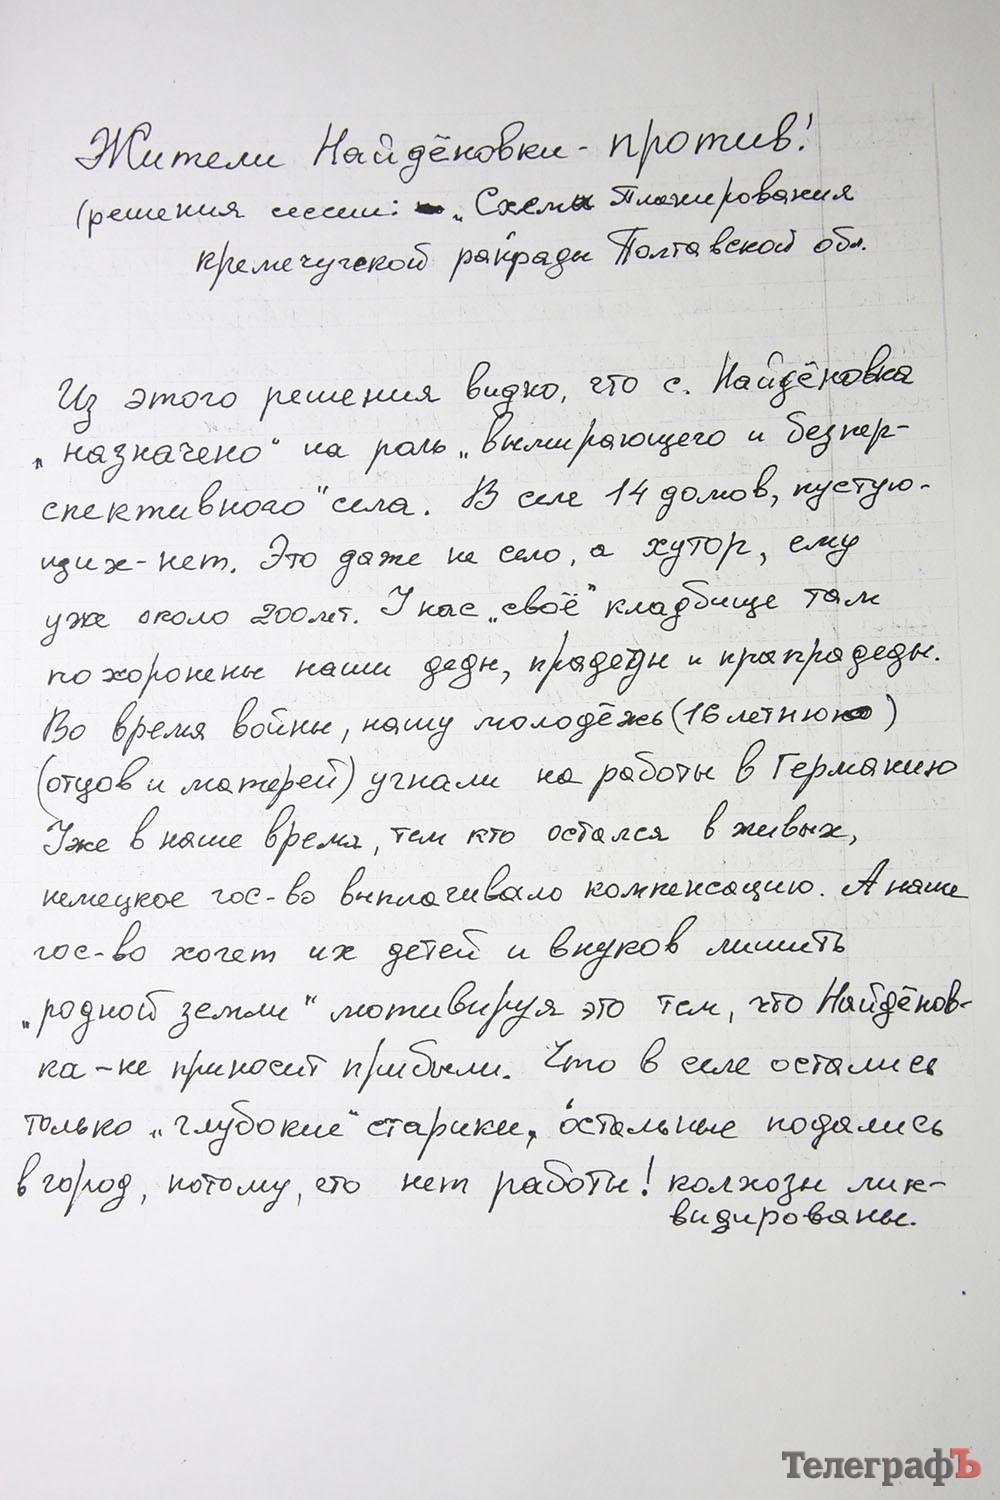 Жители Найдёновки - против!
(решения сессии: „Схемы Планирования
кремечугской райради Полтавской обл.
Из этого решения видно, что с. Найдёновка
„назначено“ на роль „вымирающего и безпер-
спективного“ села. В селе 14 домов, пустую-
щих-нет. Это даже не село, а хутор, ему
уже около 200 лет. У нас „своё“ кладбище там
похоронены наши деды, прадеды и прапрадеды.
Во время войны, нашу молодёжь (16 летнюю)
(отцов и матерей) угнали на работы в Германию
Уже в наше время, тем кто остался в живых,
немецкое гос-во выплачивало компенсацию. А наше
гос-во хочет их детей и внуков лишить
„родной земли“ мотивируя это тем, что Найдёнов-
ка - не приносит прибыли. Что в селе остались
только „глубокие“ старики, остальные подались
в город, потому, что нет работы! колхозы лик-
видированы.
ТелеграфЪ